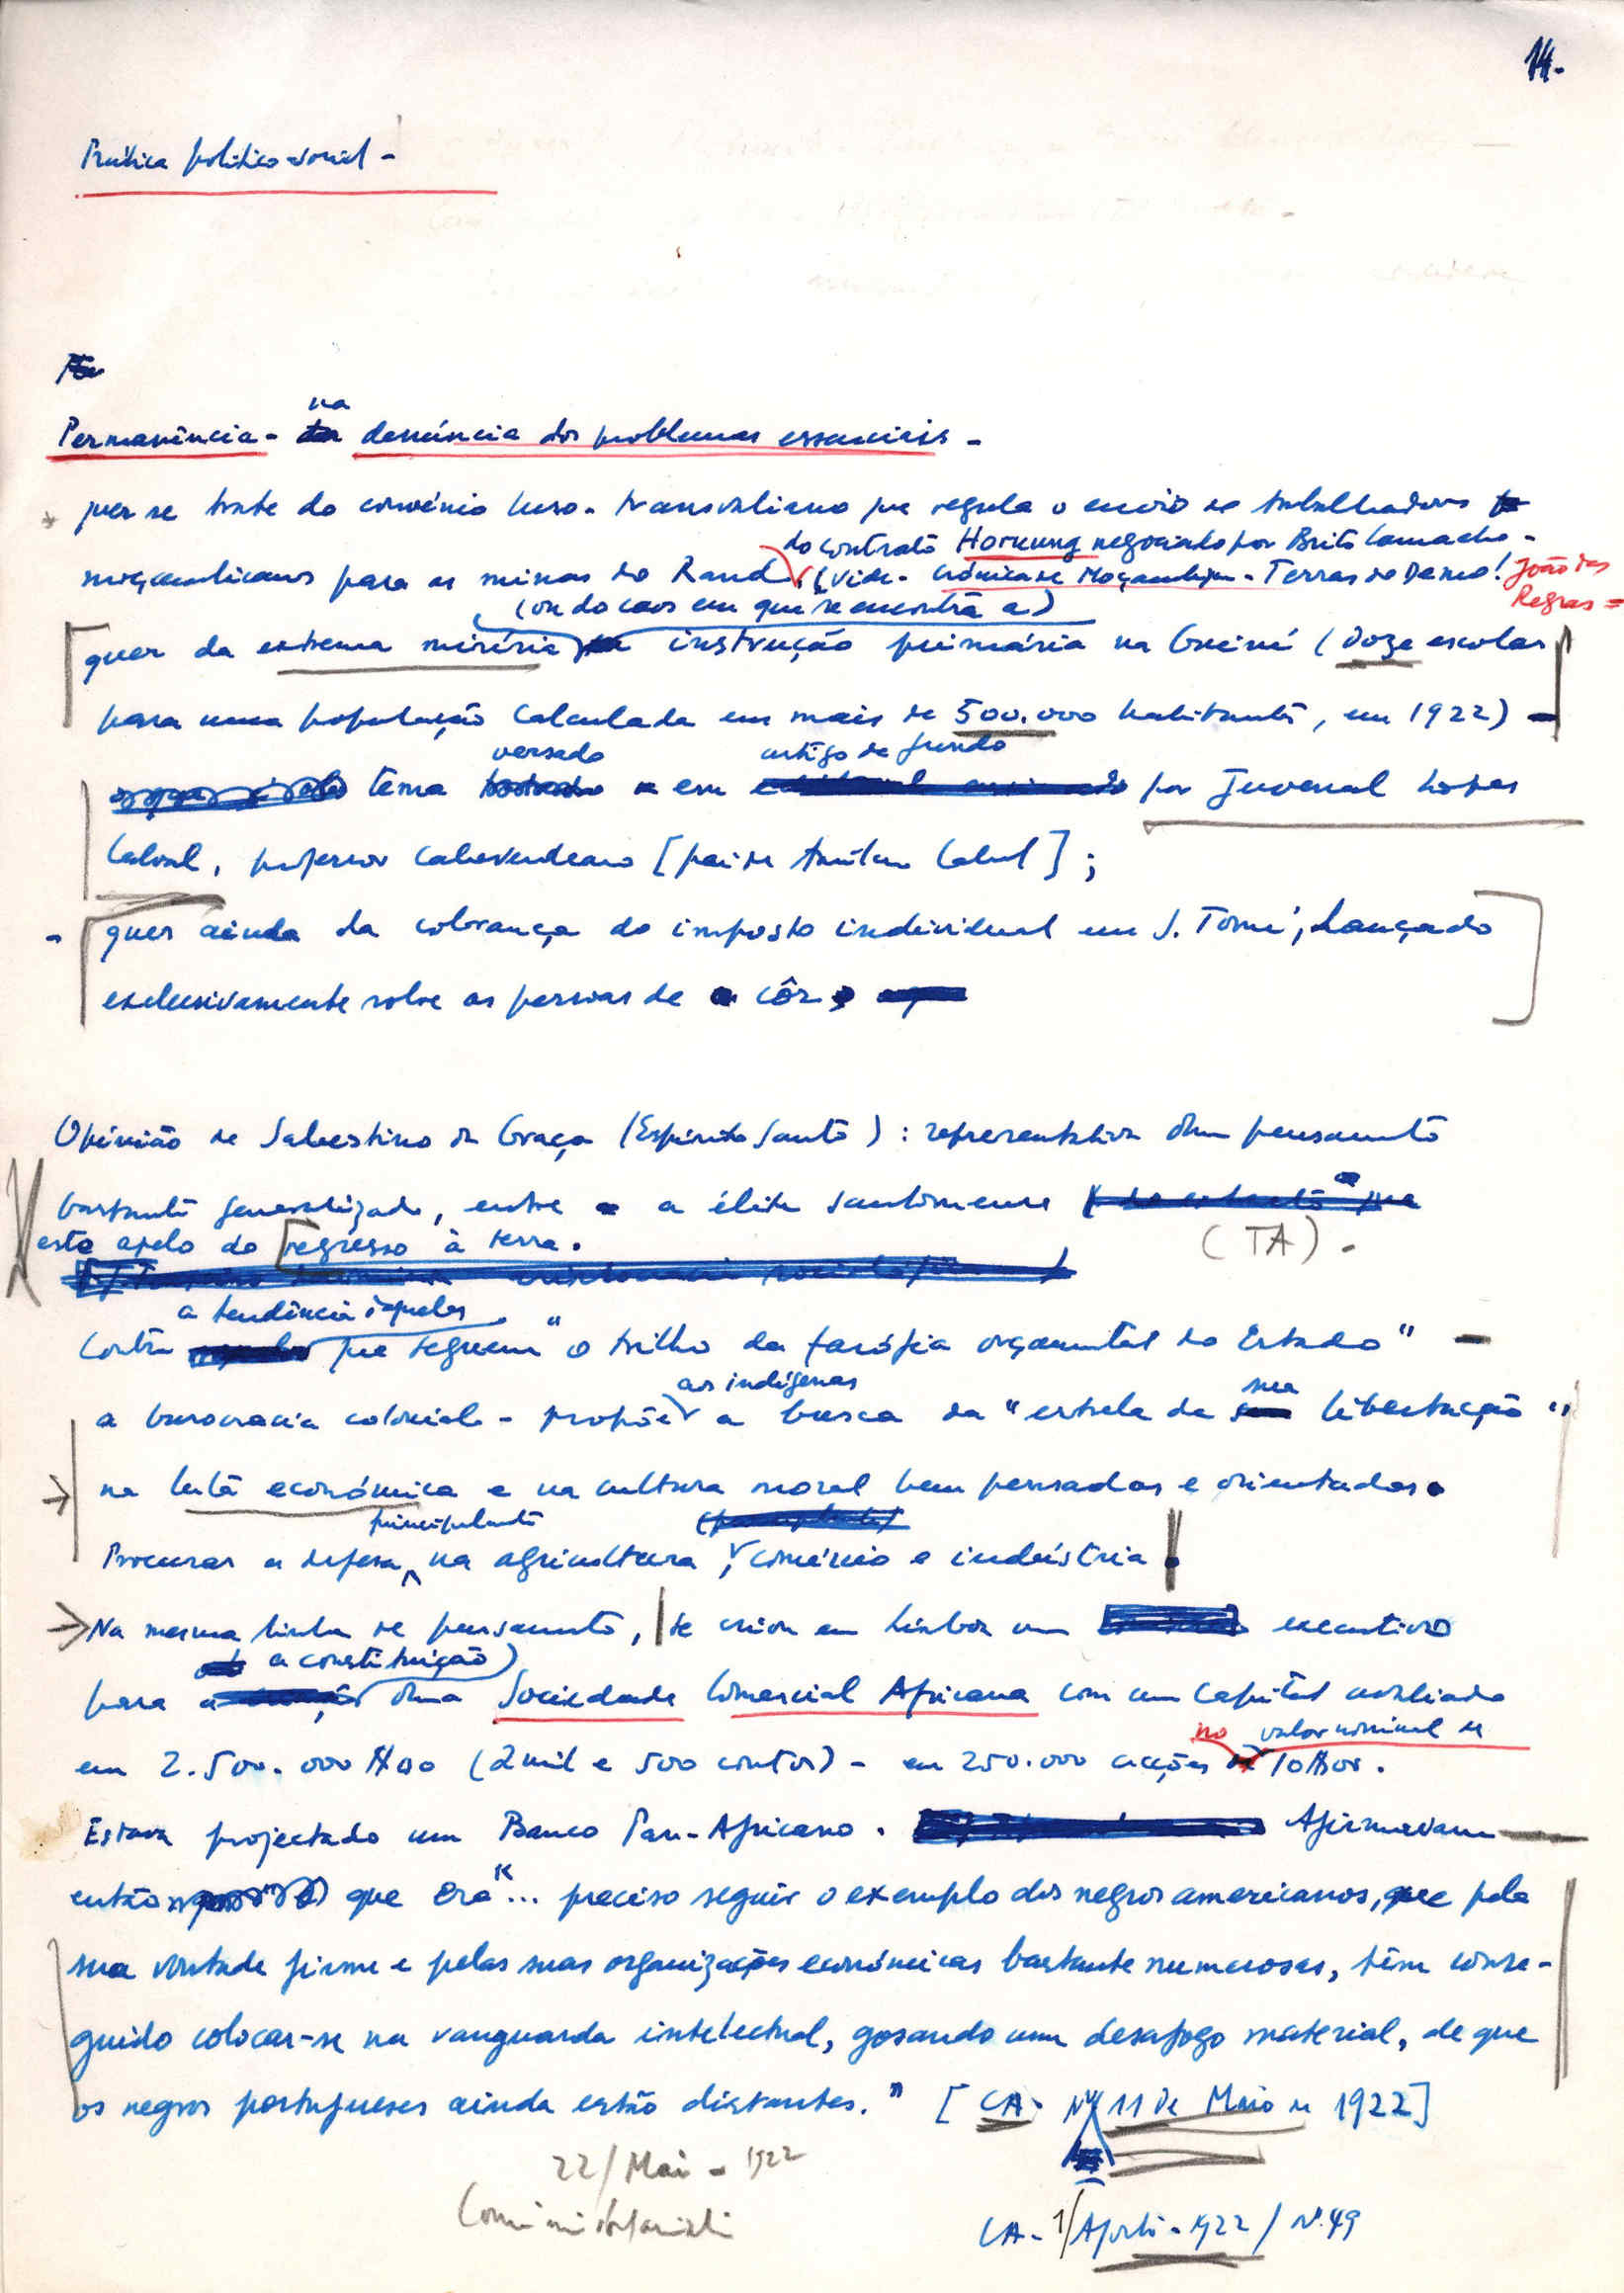 14.
Prática político-social -
Permanência - na denúncia dos problemas essenciais -
quer se trate do convénio luso-transvaliano que regula o envio de trabalhadores
do contrato Hornung negociado por Brito Camacho -
moçambicanos para as minas do Rand (Vide - Crónica de Moçambique - Terras do Demo! João das
Regras =
(ou do caos em que se encontra a)
quer da extrema miséria instrução primária na Guiné (doze escolas
para uma população calculada em mais de 500.000 habitantes, em 1922) -
versado artigo de fundo
tema em por Juvenal Lopes
Cabral, professor caboverdeano [pai de Amílcar Cabral];
- quer ainda da cobrança do imposto individual em S. Tomé, lançado
exclusivamente sobre as pessoas de côr
Opinião de Salustino da Graça (Espírito Santo): representativa dum pensamento
bastante generalizado, entre a élite santomense
este apelo do regresso à terra. (TA) -
a tendência daqueles
Contra que seguem "o trilho da farófia orçamental do Estado" -
aos indígenas sua
a burocracia colonial - propõe a busca da "estrela da libertação"
na luta económica e na cultura moral bem pensadas e orientadas.
principalmente
Procurar a defesa na agricultura, comércio e indústria.
Na mesma linha de pensamento, se criou em Lisboa um executivo
a constituição
para duma Sociedade Comercial Africana com um capital avaliado
no valor nominal de
em 2.500.000$00 (2 mil e 500 contos) - em 250.000 acções 10$00.
Estava projectado um Banco Pan-Africano. Afirmavam
então que era "... preciso seguir o exemplo dos negros americanos, que pela
sua vontade firme e pelas suas organizações económicas bastante numerosas, têm conse-
guido colocar-se na vanguarda intelectual, gosando um desafogo material, de que
os negros portugueses ainda estão distantes." [CA - 11 de Maio de 1922]
22/Mai - 1922
CA - 1/Agosto - 1922 / Nº.49